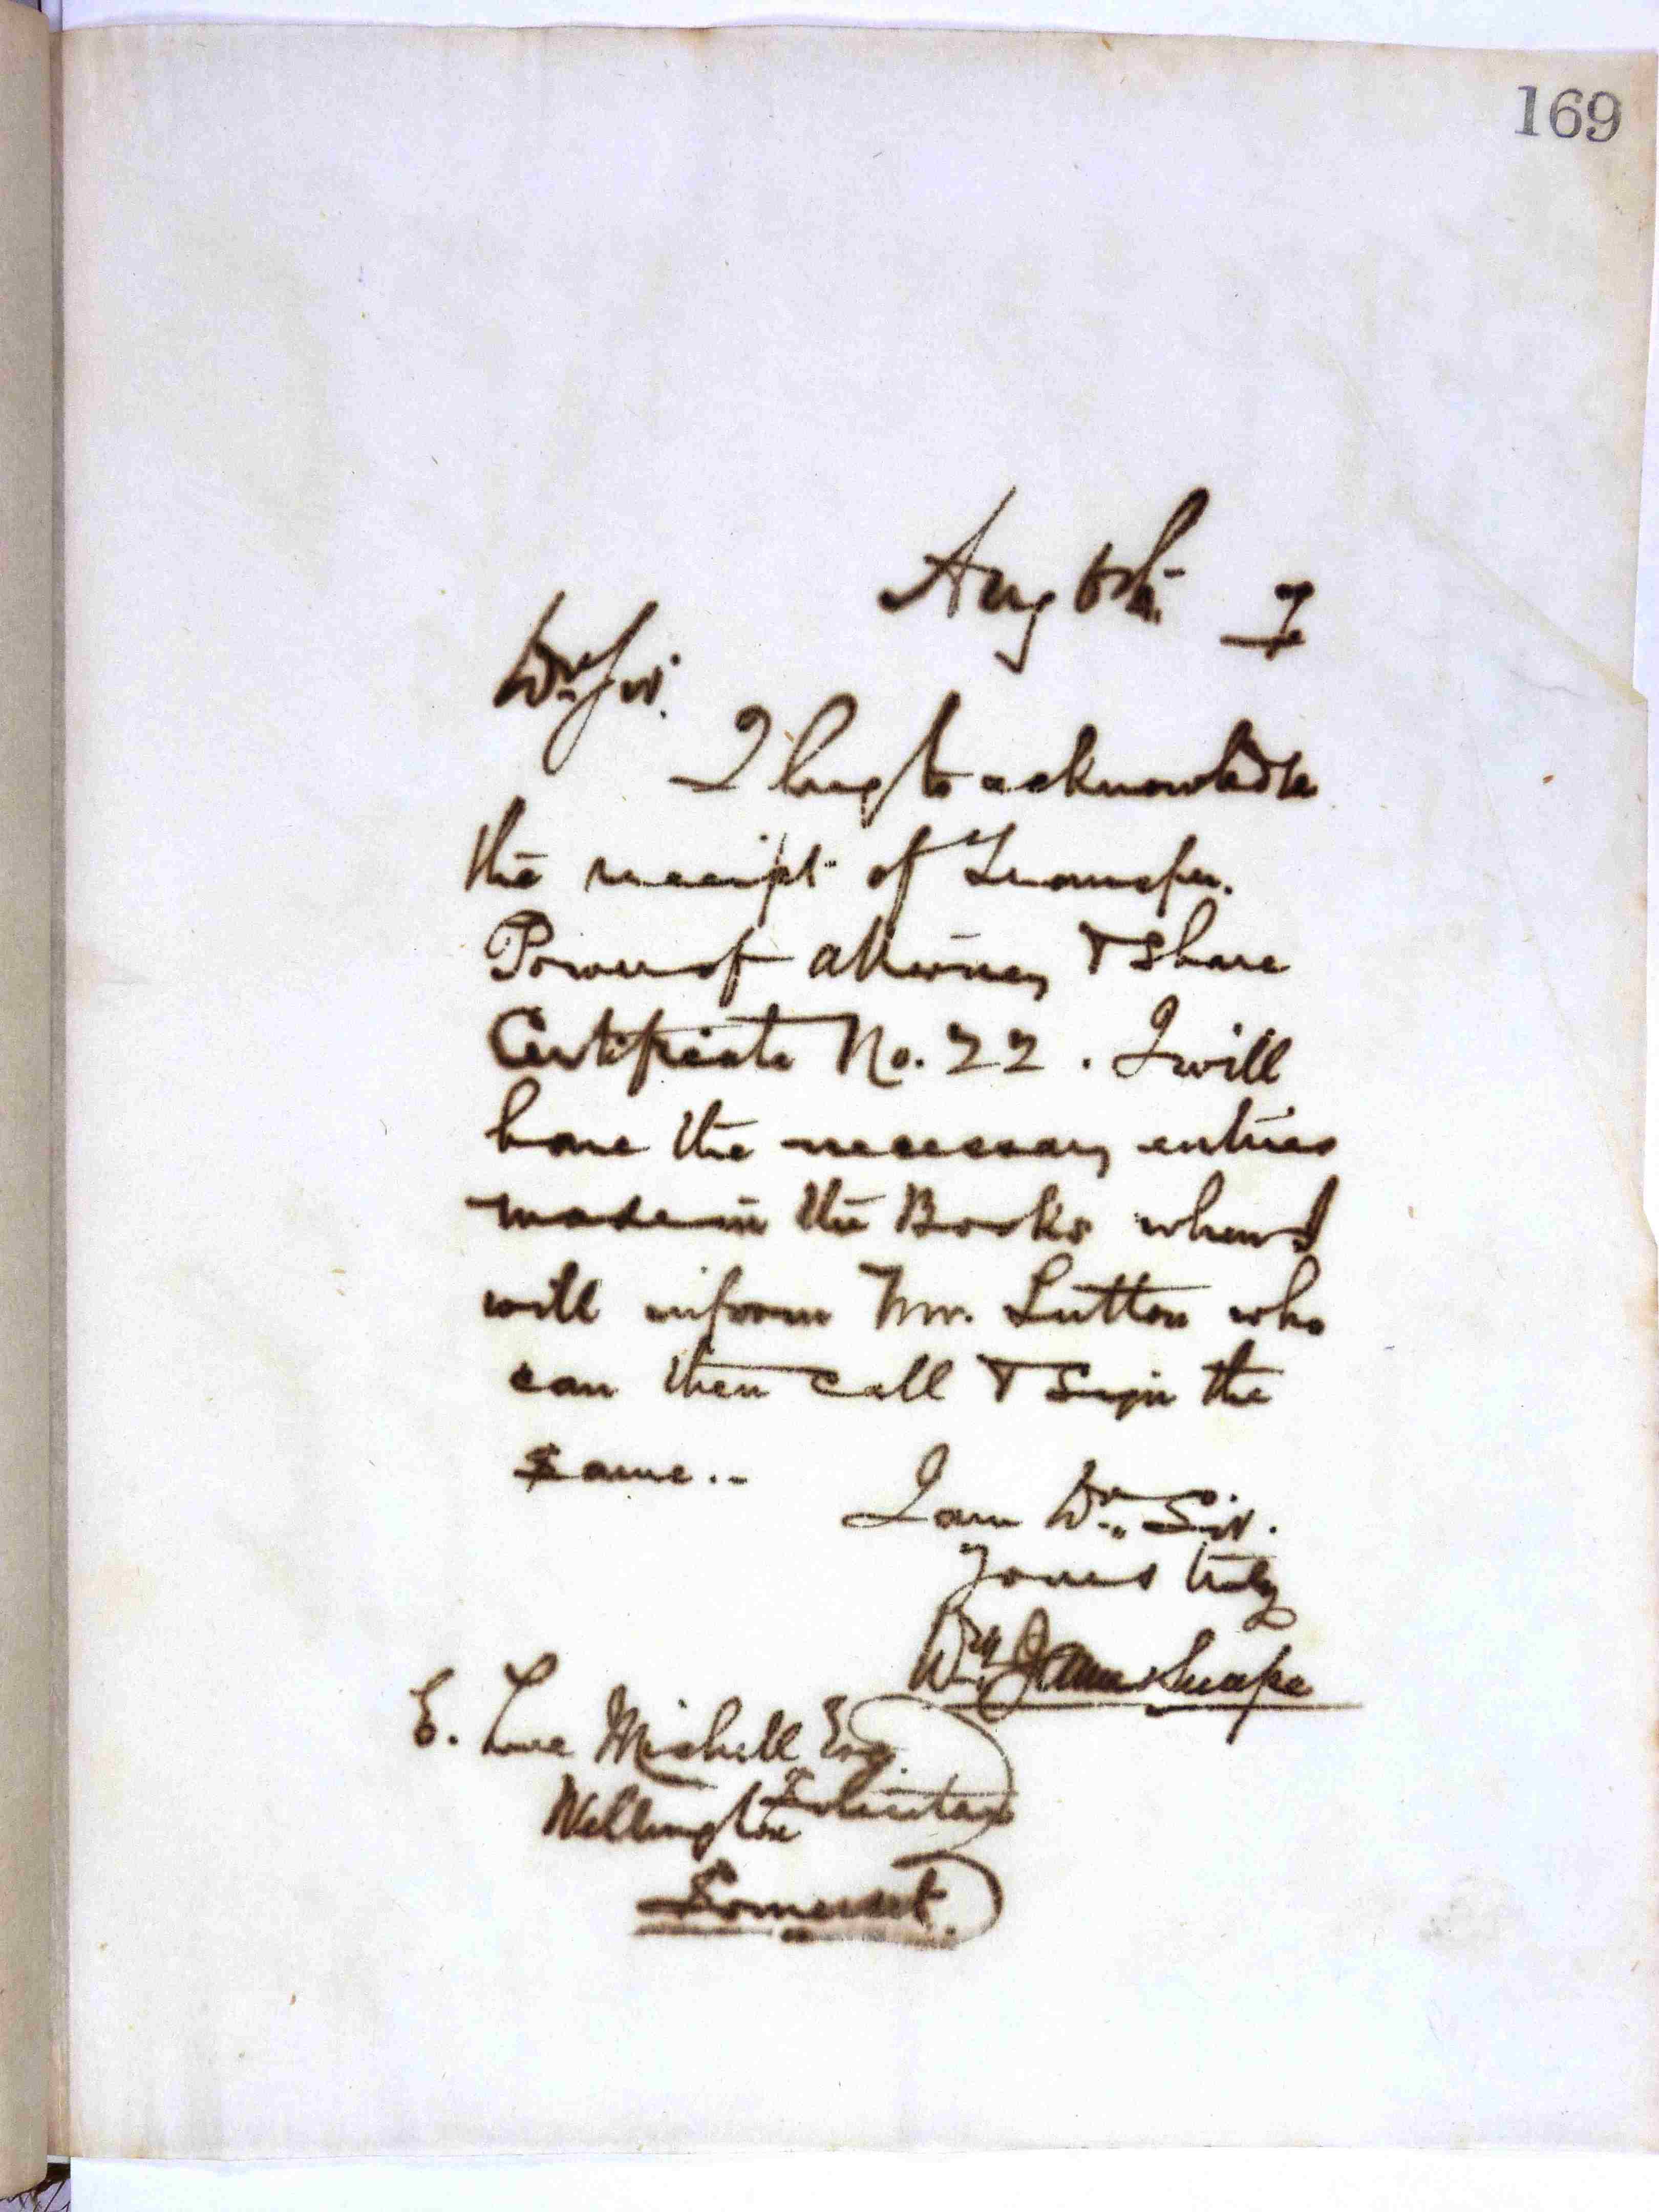 169
Aug 6th 7
Dr Sir.
I beg to acknowledge
the receipt of Transfer.
Power of attorney & Share
Certificate No. 22. I will
have the necessary entries
made in the Books when I
will inform Mr. Sutton who
can then call & Sign the
same..
I am Dr Sir.
Yours truly
Wm James Thorpe
E. Love Michell Esq
Solicitor
Wellington
Somerset.